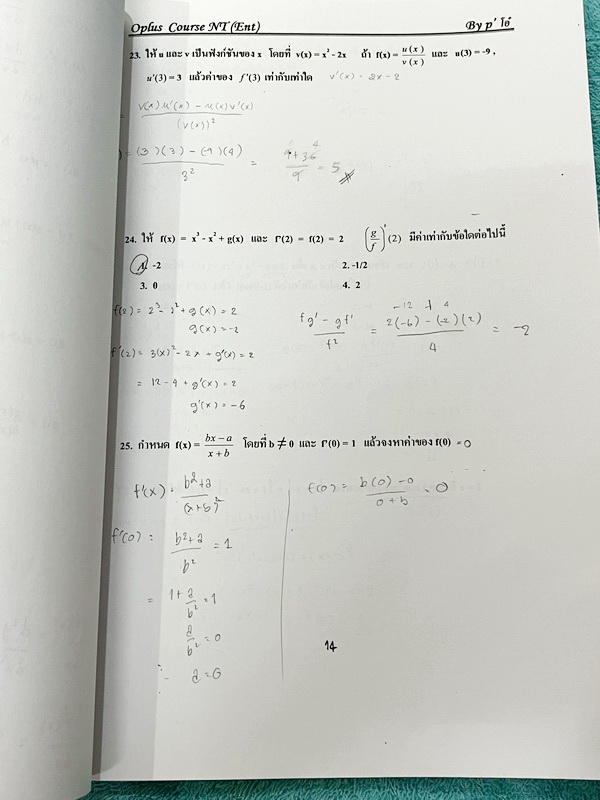 Oplus Course NT (Ent) By p' โอ๋
23. ให้ u และ v เป็นฟังก์ชันของ x โดยที่ v(x) = x² - 2x ถ้า f(x) = u(x)/v(x) และ u(3) = -9 ,
u'(3) = 3 แล้วค่าของ f'(3) เท่ากับเท่าใด v'(x) = 2x - 2
= v(x)u'(x) - u(x)v'(x) / (v(x))²
= (3)(3) - (-9)(4) / 3² = 9+36 / 9 = 5
24. ให้ f(x) = x³ - x² + g(x) และ f'(2) = f(2) = 2 (g/f)'(2) มีค่าเท่ากับข้อใดต่อไปนี้
1. -2 2. -1/2
3. 0 4. 2
f(2) = 2³ - 2² + g(x) = 2
g(x) = -2
f'(2) = 3(x)² - 2x + g'(x) = 2
= 12 - 4 + g'(x) = 2
g'(x) = -6
fg' - gf' / f² = 2(-6) - (-2)(2) / 4 = -2
-12 + 4
25. กำหนด f(x) = bx - a / x + b โดยที่ b ≠ 0 และ f'(0) = 1 แล้วจงหาค่าของ f(0) = 0
f'(x) = b²+a / (x+b)²
f'(0) = b²+a / b² = 1
= 1 + a/b² = 1
a/b² = 0
∴ a = 0
f(0) = b(0) - 0 / 0 + b = 0
14